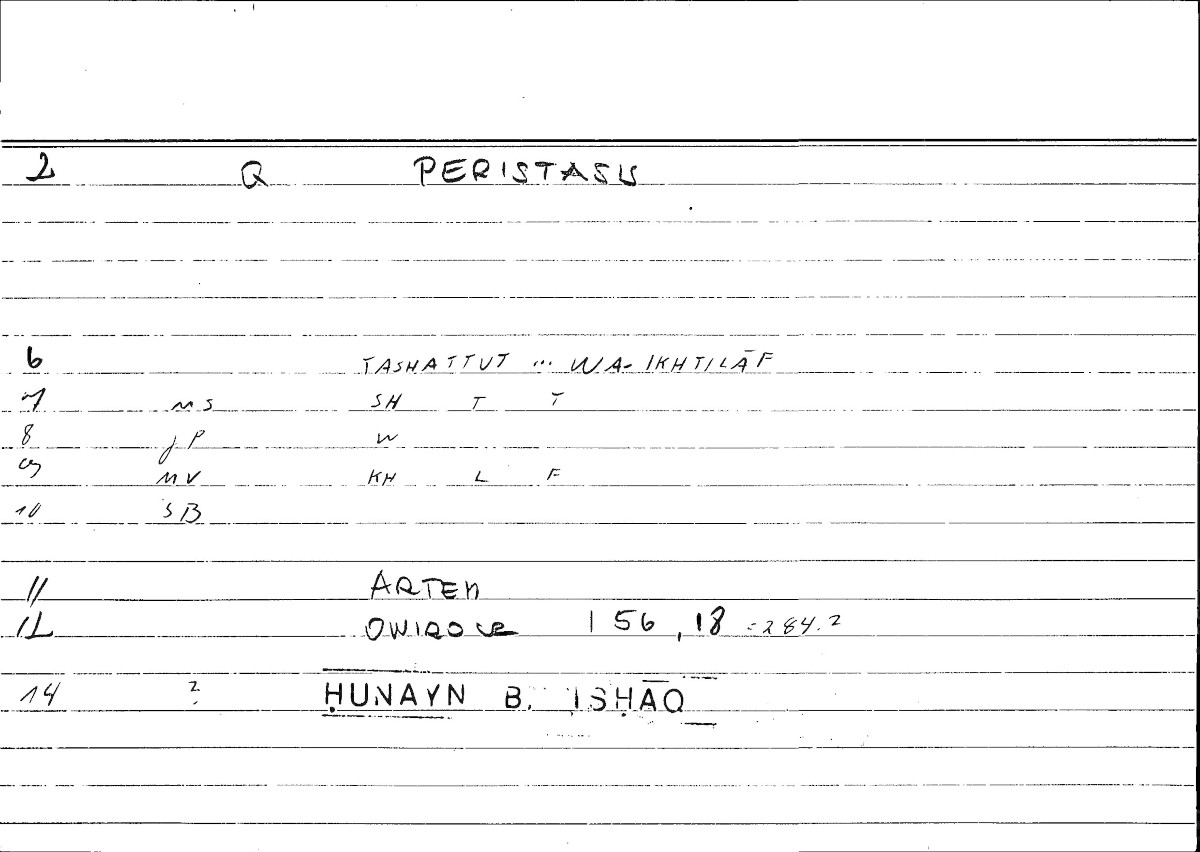 2 Q PERISTASIS
6 TASHATTUT ... WA-IKHTILĀF
7 MS SH T T
8 JP W
9 MV KH L F
10 SB
11 ARTEM
12 ONIROCR 156,18 =284.2
14 ? ḤUNAYN B. ISḤĀQ